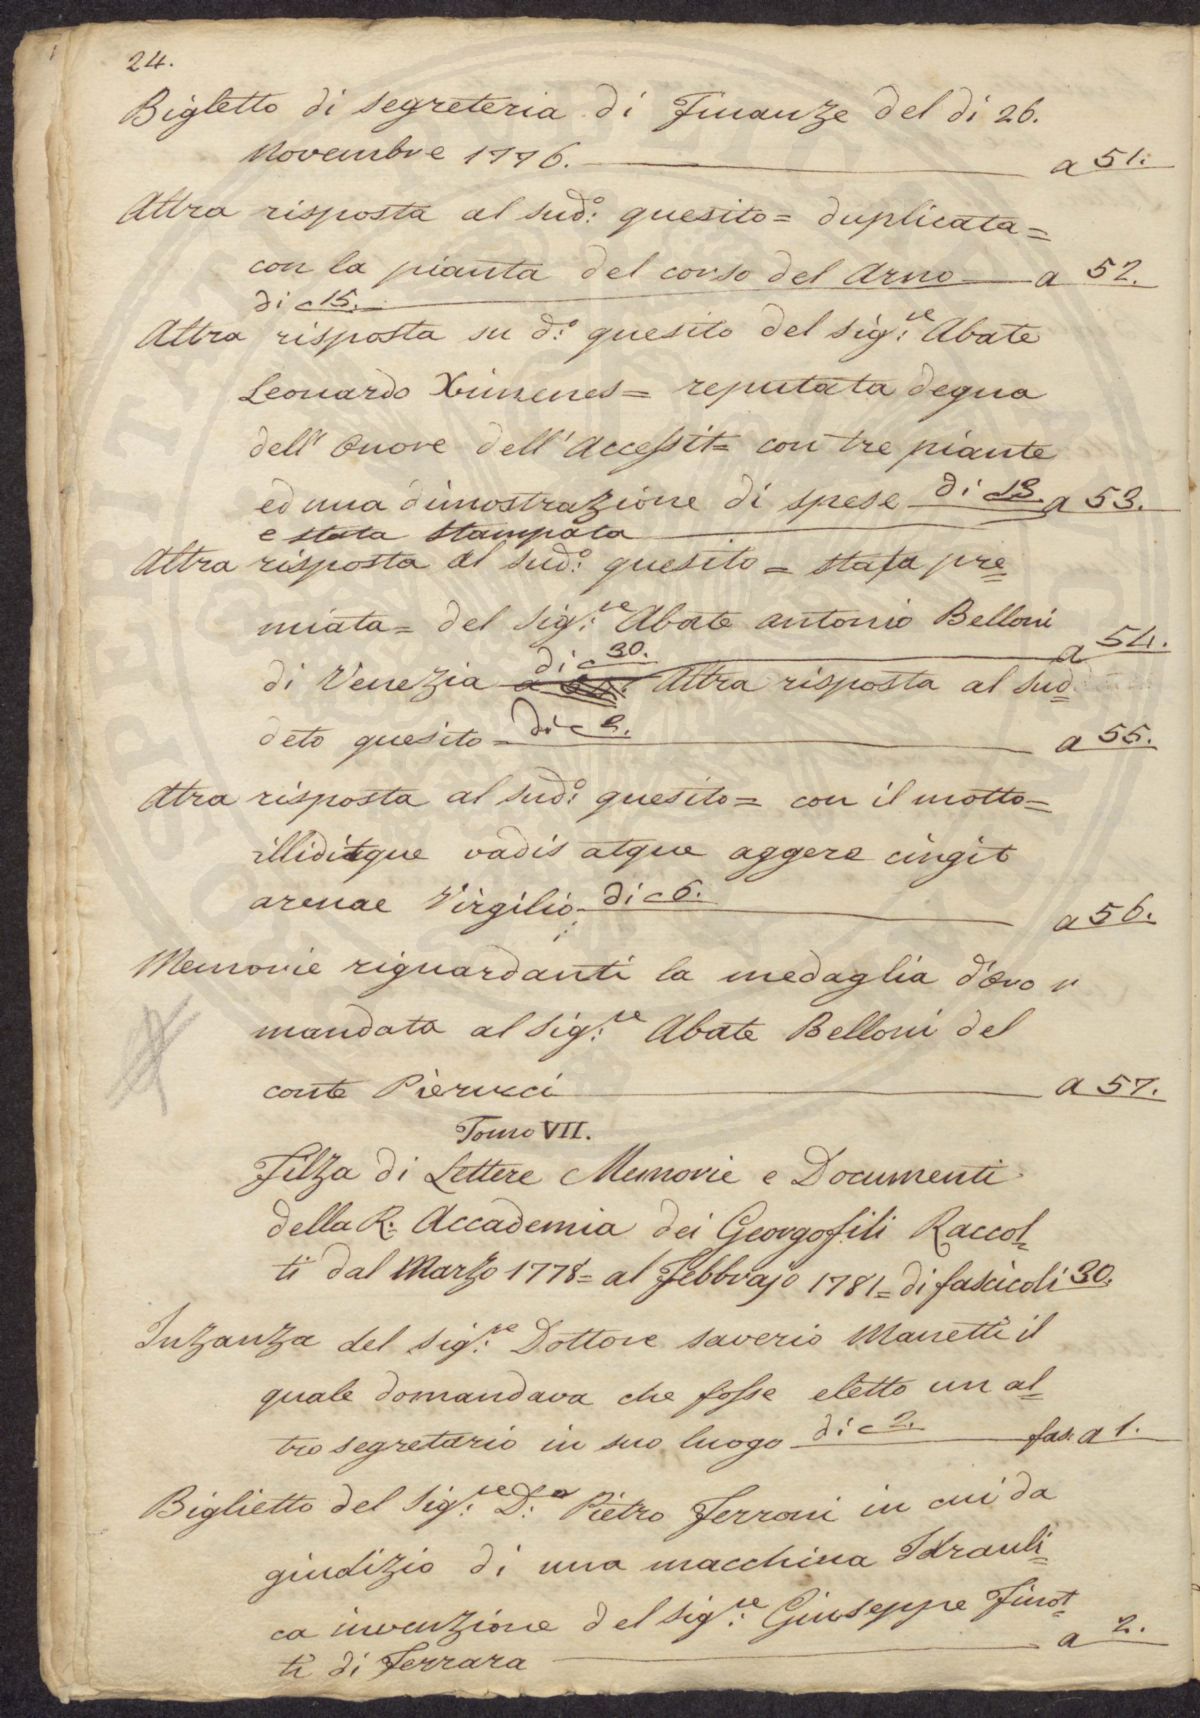 24.
Bigletto di segreteria di Finanze del di 26.
Novembre 1776. a 51.
Altra risposta al sud.o quesito= duplicata=
con la pianta del corso del Arno a 52.
di c 15.
Altra risposta su d.o quesito del sig.re Abate
Leonardo Ximenes= reputata degna
dell'Onore dell'Accessit= con tre piante
ed una dimostrazione di spese di c 13. a 53.
e stata stampata
Altra risposta al sud.o quesito= stata pre=
miata= del sig.re Abate Antonio Belloni
di c 30. a 54.
di Venezia Altra risposta al sud=
deto quesito= di c 2. a 55.
Altra risposta al sud.o quesito= con il motto=
illiditque vadis atque aggere cingit
arenae Virgilio. di c 6. a 56.
Memorie riguardanti la medaglia d'Oro
mandata al sig.re Abate Belloni del
conte Pierucci a 57.
Tomo VII.
Filza di Lettere Memorie e Documenti
della R. Accademia dei Georgofili Raccol=
ti dal Marzo 1778= al Febbrajo 1781= di fascicoli 30.
Inzanza del sig.re Dottore saverio Manetti il
quale domandava che fosse eletto un al=
tro segretario in suo luogo di c 2. fas. a 1.
Biglietto del sig.re D.r Pietro Ferroni in cui da
giudizio di una macchina Idrauli=
ca invenzione del sig.re Giuseppe Finot=
ti di Ferrara a 2.